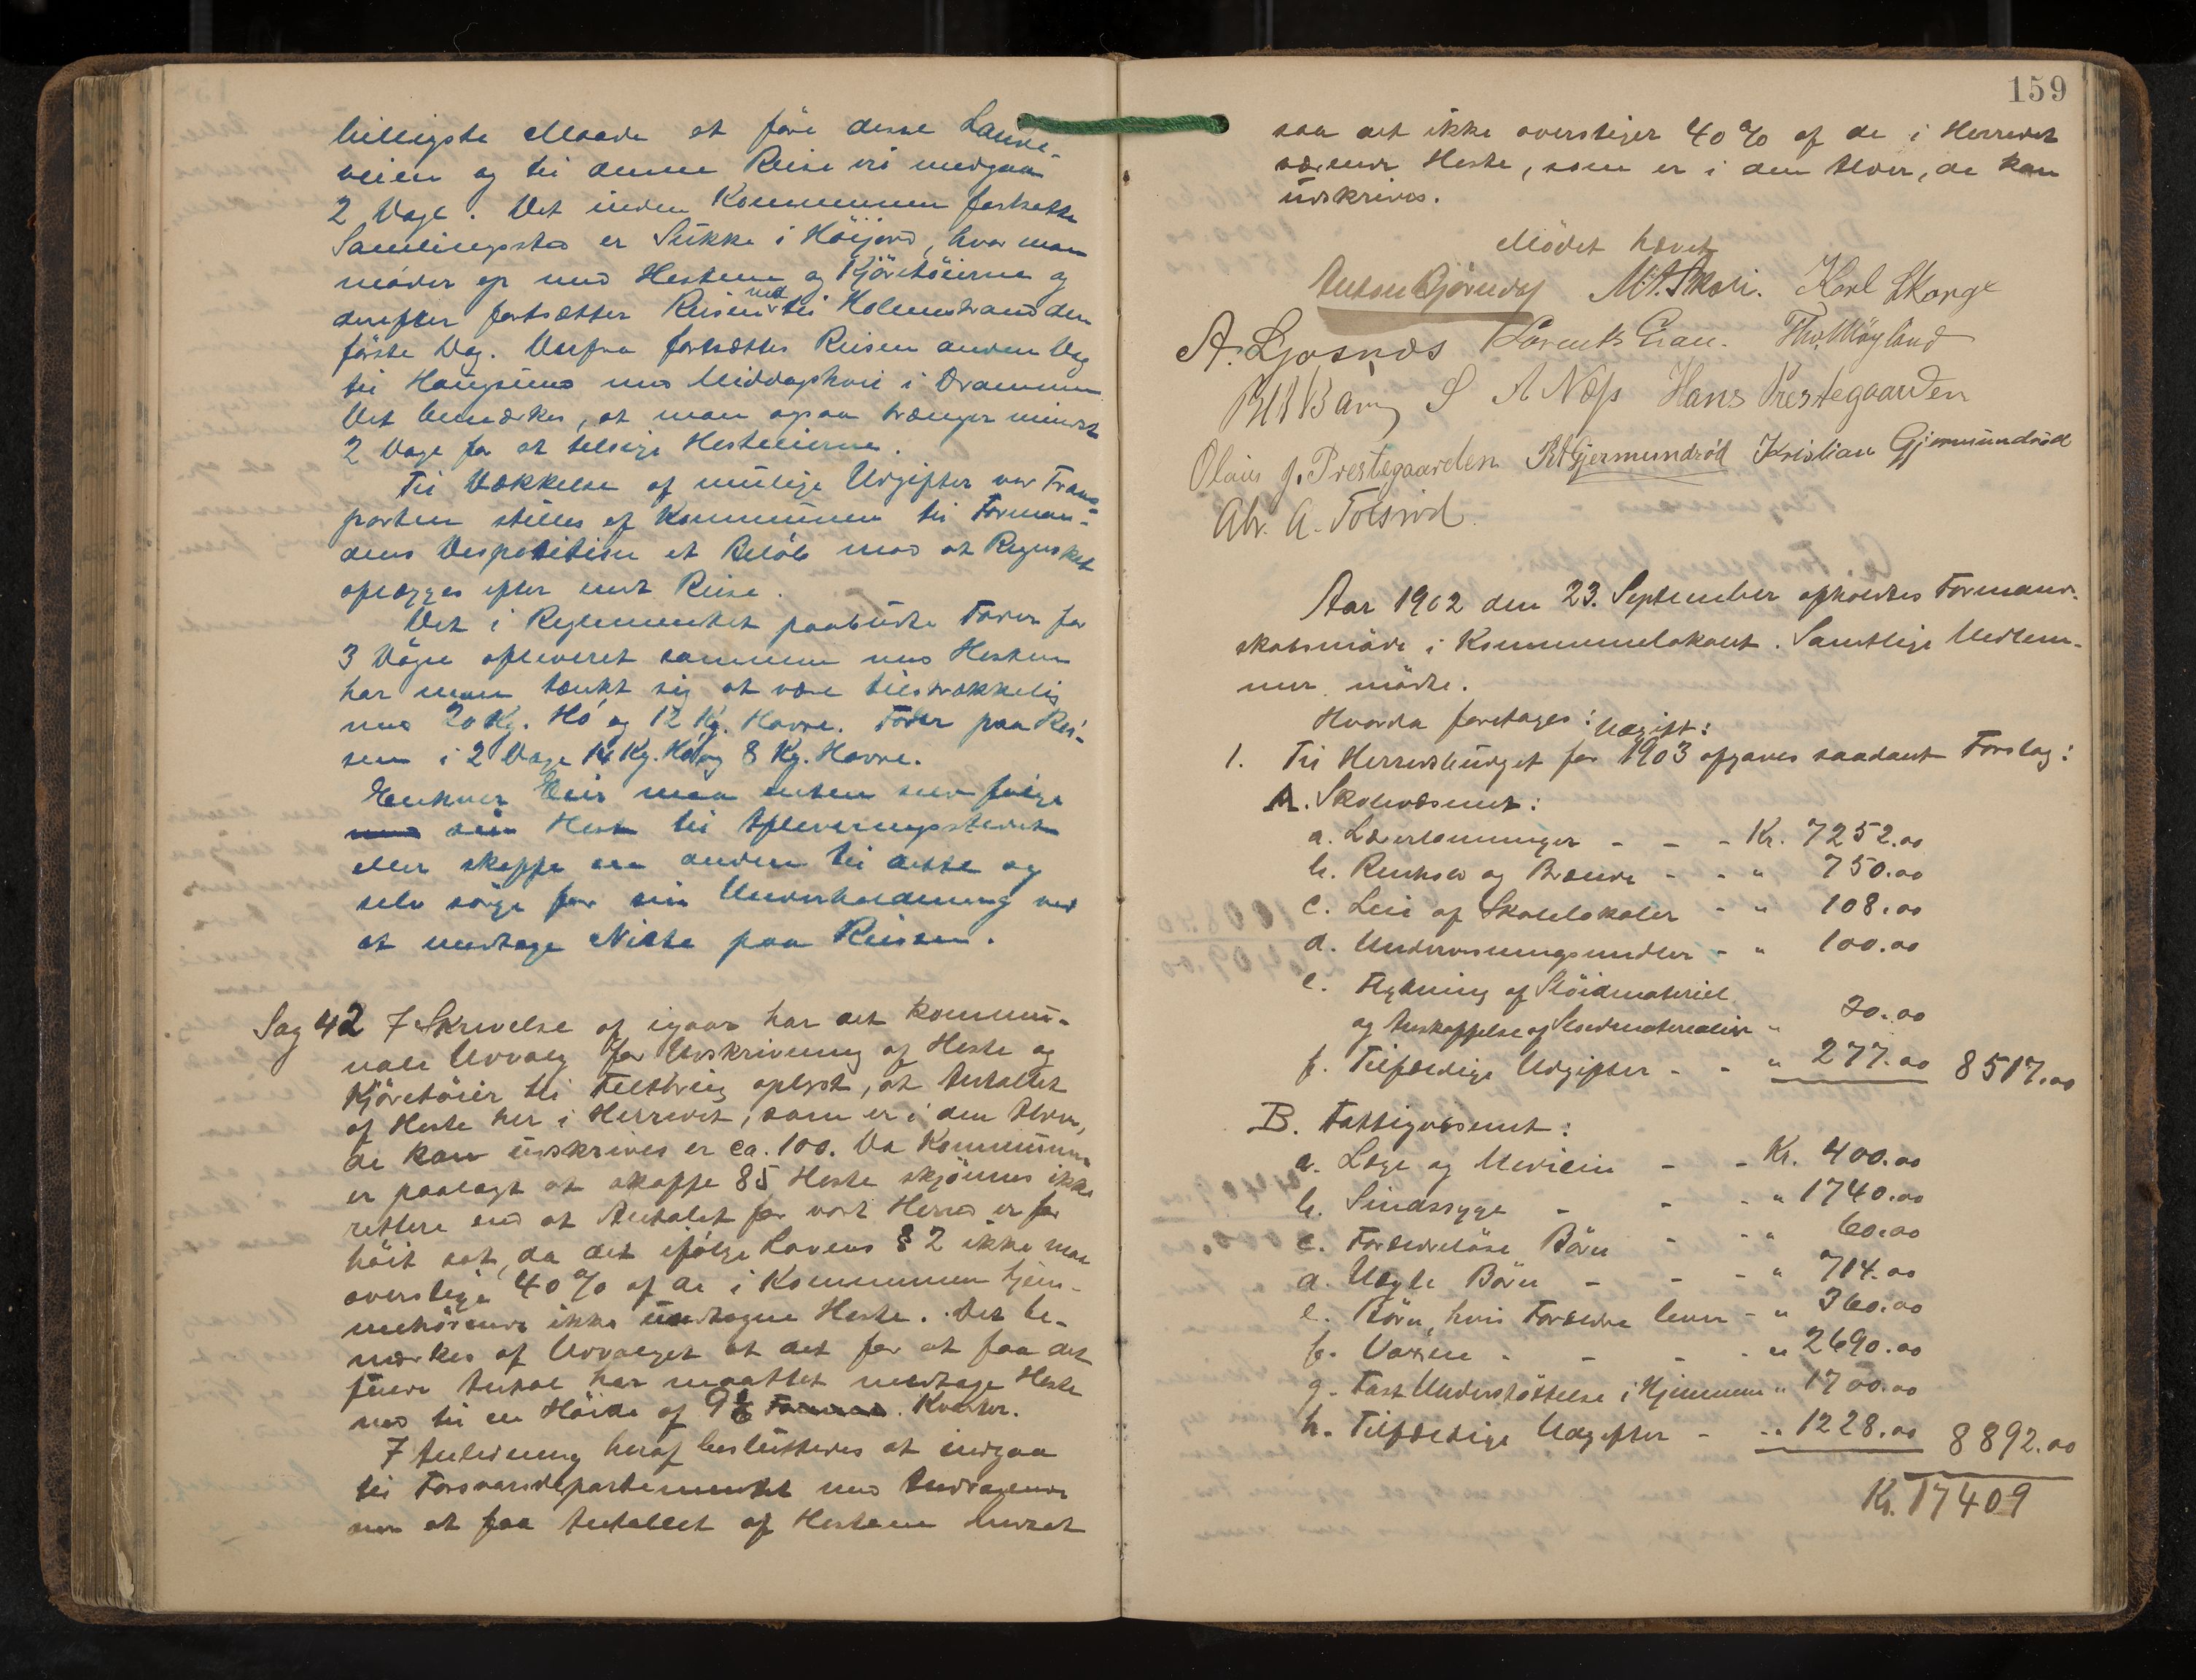 billigste Maade at före disse Lande-
veien og til denne Reise vil medgaa
2 Dage. Det inden Kommunen fastsatte
Samlingssted er Sukke i Höijord, hvor man
möder op med Hestene og Kjöretöierne og
derefter fortsætter Reisen ned til Holmestrand den
förste Dag. Derfra fortsættes Reisen anden Dag
til Haugsund med Middagshvil i Drammen
Det bemærkes, at man ogsaa trænger mindst
2 Dage for at tilsige Hesteeierne.
Til Dækkelse af mulige Udgifter ved Trans-
porten stilles af Kommunen til Forman-
dens Desposition et Belöb mod at Regnskab
aflægges efter endt Reise.
Det i Reglementet paabudte Foder for
3 Dögn afleveret sammen med Hesten
har man tænkt sig at være tilstrækkelig
med 20 Kg. Hö og 12 Kg. Havre. Foder paa Rei-
sen i 2 Dage 14 Kg. Hö og 8 Kg. Havre.
Enhver Eier maa enten selv fölge
med sin Hest til Afleveringsstedet
eller skaffe en anden til dette og
selv sörge for sin Underholdning ved
at medtage Niste paa Reisen.
Sag 42 I Skrivelse af igaar har det kommu-
nale Udvalg for Udskrivning af Heste og
Kjöretöier til Feltbrug oplyst, at Antallet
af Heste her i Herredet, som er i den Alder,
de kan udskrives er ca. 100. Da Kommunen
er paalagt at skaffe 85 Heste skjönnes ikke
rettere end at Antalet for vort Herred er for
höit sat, da det ifölge Lovens § 2 ikke maa
overstige 40 % af de i Kommunen hjem-
mehörende ikke undtagne Heste. Det be-
mærkes af Udvalget at det for at faa det
fulde Antal har maattet medtage Heste
ned til en Höide af 9 Kvarter.
I Anledning heraf besluttedes at indgaa
til Forsvarsdepartementet med Andragende
om at faa Antallet af Hestene nedsat
159
saa det ikke overstiger 40 % af de i Herredet
værende Heste, som er i den Alder, de kan
udskrives.
Mödet hævet
Anton Bjørndal M. A. Skali. Karl Skorge
A. Ljosnæs Lorents Gran. Thv. Möyland
S A Næss Hans Prestegaarden
Olaus J. Prestegaarden Kr Gjermundröd Kristian Gjermundröd
Abr. A. Tolsrød.
Aar 1902 den 23. September afholdtes Formand-
skabsmöde i Kommunelokalet. Samtlige Medlem-
mer mödte.
Hvorda foretages:
Udgift:
1. Til Herredsbudget for 1903 afgaves saadant Forslag:
A. Skolevæsenet:
a. Lærerlønninger - - - Kr. 7252.00
b. Renhold og Brænde - - " 750.00
c. Leie af Skolelokaler - " 108.00
d. Undervisningsmidler - " 100.00
e. Flytning af Slöidmateriel
og Anskaffelse af Slöidmaterialier " 30.00
f. Tilfældige Udgifter - - " 277.00 8517.00
B. Fattigvæsenet:
a. Læge og Medicin - - Kr. 400.00
b. Sindssyge - - - " 1740.00
c. Forældrelöse Börn - - " 60.00
d. Uægte Börn - - - " 714.00
e. Börn, hvis Forældre lever - " 360.00
f. Voxne - - - - " 2690.00
g. Fast Understöttelse i Hjemmene " 1700.00
h. Tilfældige Udgifter - - " 1228.00 8892.00
Kr. 17409